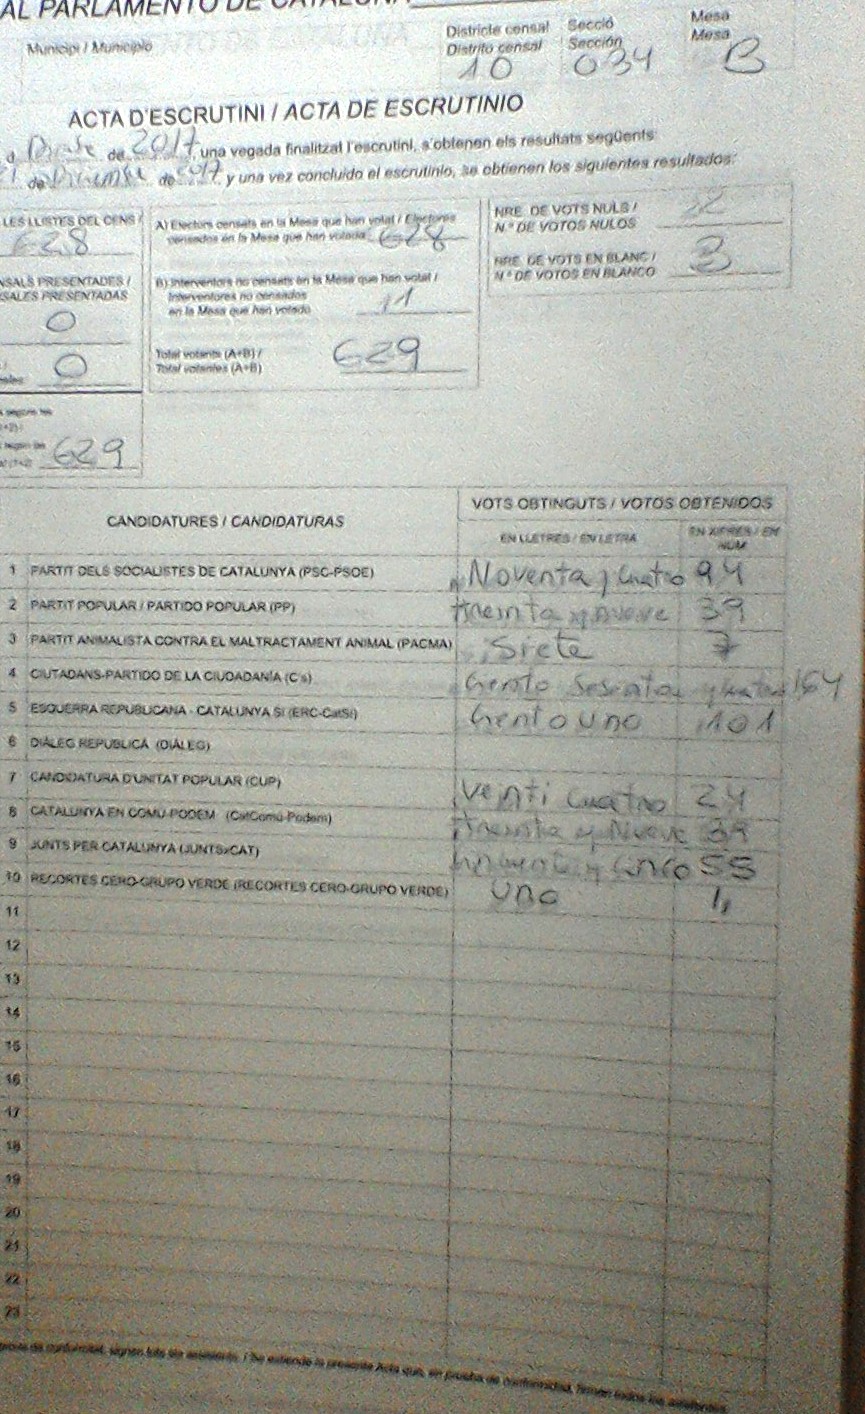 AL PARLAMENTO DE CATALUÑA
Municipi / Municipio
Districte censal
Distrito censal
10
Secció
Sección
034
Mesa
Mesa
B
ACTA D'ESCRUTINI / ACTA DE ESCRUTINIO
de 2017, una vegada finalitzat l'escrutini, s'obtenen els resultats següents:
de de 2017 y una vez concluido el escrutinio, se obtienen los siguientes resultados:
LES LLISTES DEL CENS /
628
NSALS PRESENTADES /
SALES PRESENTADAS
0
0
629
A) Electors censats en la Mesa que han votat / Electores
censados en la Mesa que han votado 628
B) Interventors no censats en la Mesa que han votat /
Interventores no censados
en la Mesa que han votado 1
Total votants (A+B) /
Total votantes (A+B) 629
NRE. DE VOTS NULS /
N.º DE VOTOS NULOS 2
NRE. DE VOTS EN BLANC /
N.º DE VOTOS EN BLANCO 3
CANDIDATURES / CANDIDATURAS
VOTS OBTINGUTS / VOTOS OBTENIDOS
EN LLETRES / EN LETRA
EN XIFRES / EN
NÚM
1 PARTIT DELS SOCIALISTES DE CATALUNYA (PSC-PSOE) Noventa y cuatro 94
2 PARTIT POPULAR / PARTIDO POPULAR (PP) treinta y nueve 39
3 PARTIT ANIMALISTA CONTRA EL MALTRACTAMENT ANIMAL (PACMA) Siete 7
4 CIUTADANS-PARTIDO DE LA CIUDADANÍA (C's) Ciento Sesenta y cuatro 164
5 ESQUERRA REPUBLICANA - CATALUNYA SÍ (ERC-CatSí) Ciento uno 101
6 DIÀLEG REPUBLICÀ (DIÀLEG)
7 CANDIDATURA D'UNITAT POPULAR (CUP) Venti cuatro 24
8 CATALUNYA EN COMÚ-PODEM (CatComú-Podem) treinta y Nueve 39
9 JUNTS PER CATALUNYA (JUNTSxCAT) cincuenta y cinco 55
10 RECORTES CERO-GRUPO VERDE (RECORTES CERO-GRUPO VERDE) uno 1
11
12
13
14
15
16
17
18
19
20
21
22
23
de conformitat, signen tots els assistents. / Se extiende la presente Acta que, en prueba de conformidad, firman todos los asistentes